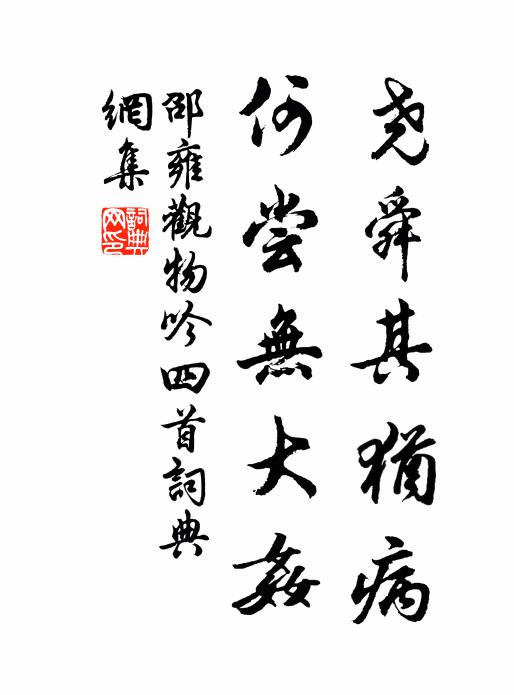 堯舜其猶病
何嘗無大姦
邵雍觀物吟四首詞典
網集
詞典
网印